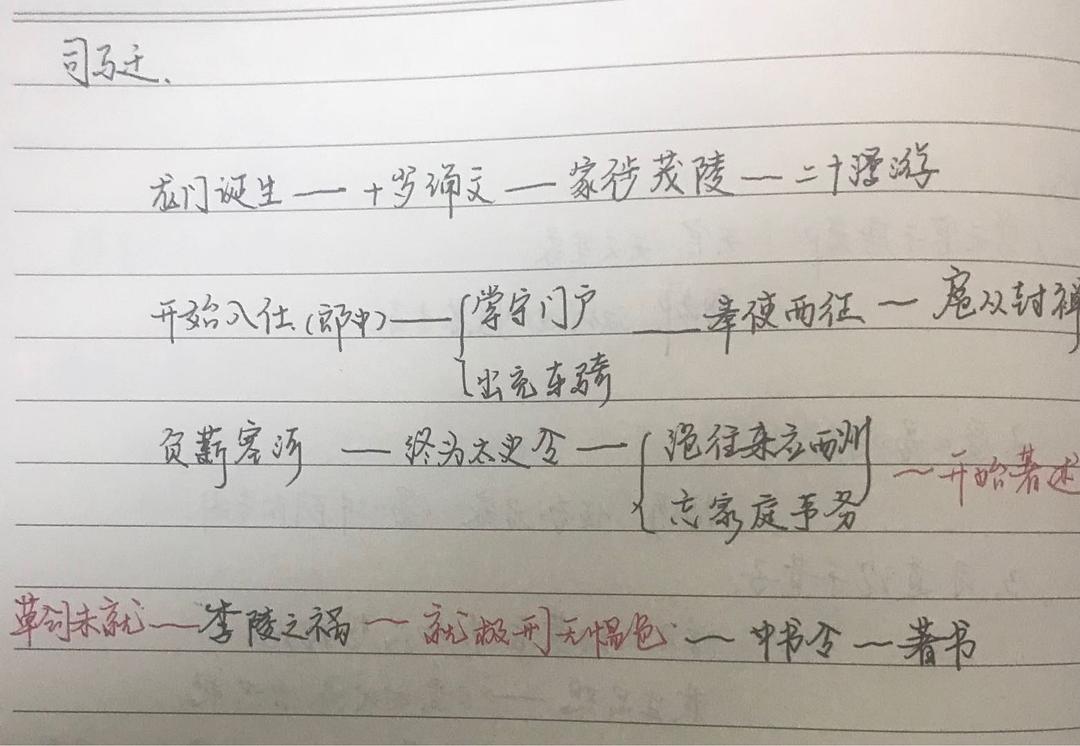 司马迁.
龙门诞生 — 十岁诵文 — 家徙茂陵 — 二十漫游
开始入仕(郎中) — { 掌守门户 — 奉使西征 — 扈从封禅
出充车骑
负薪塞河 — 终为太史令 — { 绝往来应酬 — 开始著述
忘家庭事务
草创未就 — 李陵之祸 — 就极刑无愠色 — 中书令 — 著书